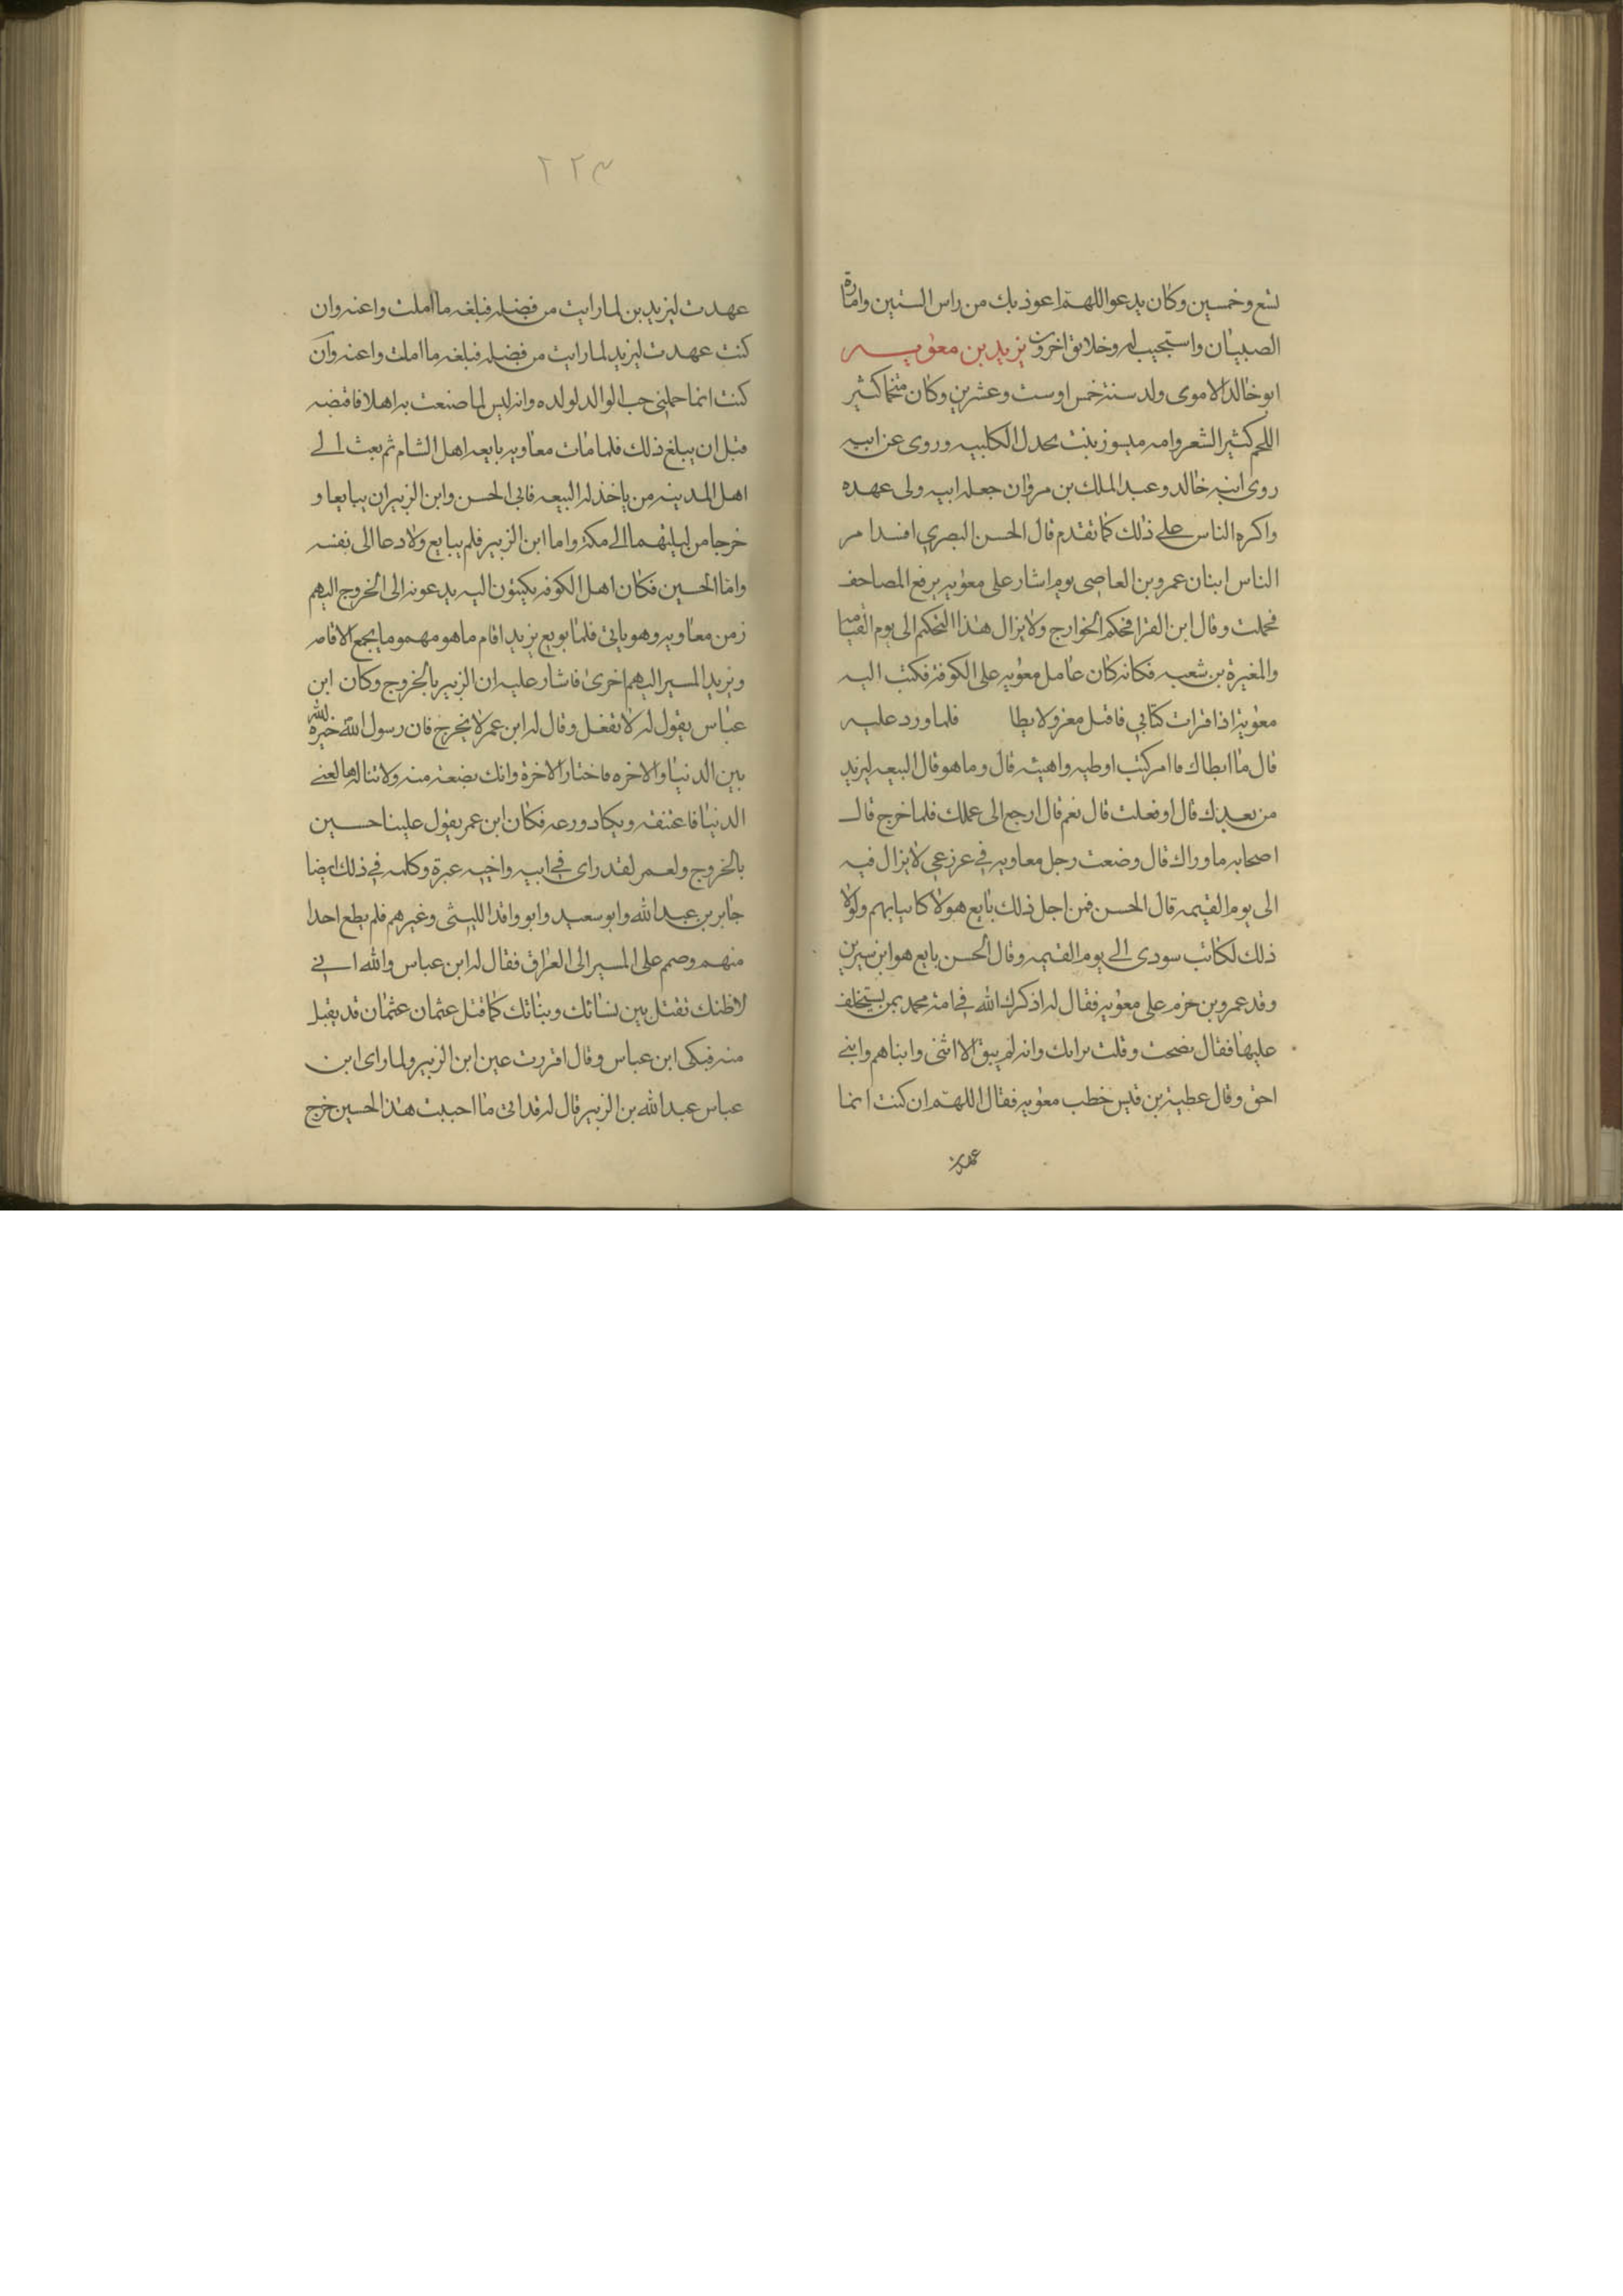 تسع وخمسين وكان يدعو اللهم اعوذ بك من راس الستين وامارة
الصبيان واستجيب له وخلايق اخرون يزيد بن معويه
ابو خالد الاموى ولد سنة خمس او ست وعشرين وكان ضخما كثير
اللحم كثير الشعر وامه ميسون بنت بحدل الكلبيه وروى عن ابيه
روى ابنه خالد وعبد الملك بن مروان جعله ابيه ولى عهده
واكره الناس على ذلك كما تقدم قال الحسن البصري افسد امر
الناس ابنان عمرو بن العاصى يوم اشار على معويه برفع المصاحف
فحملت وقال ابن الفرا فحكم الخوارج ولا يزال هذا التحكم الى يوم القيامة
والمغيرة بن شعبه فكانه كان عامل معويه على الكوفة فكتب اليه
معوية اذا قرات كتابي فاقبل معزولا بطا فلما ورد عليه
قال ما ابطاك قا امر كنت اوطيه واهيئه قال وما هو قال البيعه ليزيد
من بعدك قال او فعلت قال نعم قال ارجع الى عملك فلما خرج قال
اصحابه ما وراك قال وضعت رجل معاويه في غرز غي لا يزال فيه
الى يوم القيمه قال الحسن فمن اجل ذلك بايع هولا كا بيابهم ولولا
ذلك لكانت سودى الى يوم القيمه وقال الحسن بايع هو ابن سيرين
وفد عمرو بن حزم على معويه فقال له اذكرك الله في امة محمد بمن يستخلف
عليها فقال نضحت وقلت برايك وانه لم يبق الا اثنى وابناهم وابنى
احق وقال عطية بن قيس خطب معويه فقال اللهم ان كنت انما
عهدت
٢٢٣
عهدت ليزيد بن لما رايت من فضله فبلغه ما املت واعنه وان
كنت عهدت ليزيد لما رايت من فضله فبلغه ما املت واعنه وان
كنت انما حملني حب الوالد لولده وانه ليس لما صنعت به اهلا فاقبضه
قبل ان يبلغ ذلك فلما مات معاويه بايعه اهل الشام ثم بعث الى
اهل المدينه من ياخذ له البيعه فابى الحسن وابن الزبير ان يبايعا و
خرجا من ليلتهما الى مكة واما ابن الزبير فلم يبايع ولا دعا الى نفسه
واما الحسين فكان اهل الكوفه يكتبون اليه يدعونه الى الخروج اليهم
زمن معاويه وهو يابى فلما بويع يزيد اقام ما هو مهموما يجمع الاقامه
ويريد المسير اليهم اخرى فاشار عليه ان الزبير بالخروج وكان ابن
عباس يقول له لا تفعل وقال له ابن عمر لا يخرج فان رسول الله خيره الله
بين الدنيا والاخره فاختار الاخرة وانك بضعة منه ولا تنالها لعنى
الدنيا فاعتنقه وبكا دورعه فكان ابن عمر يقول علينا حسين
بالخروج ولعمر لقد راى في ابيه واخيه عبرة وكلمه في ذلك ايضا
جابر بن عبد الله وابو سعيد وابو واقد الليثى وغيرهم فلم يطع احدا
منهم وصمم على المسير الى العراق فقال له ابن عباس والله انى
لاظنك تقتل بين نسائك وبناتك كما قتل عثمان عثمان قد يقبل
منه فبكى ابن عباس وقال اقررت عين ابن الزبير ولما راى ابن
عباس عبد الله بن الزبير قال له قد اتى ما احببت هذا الحسين خرج